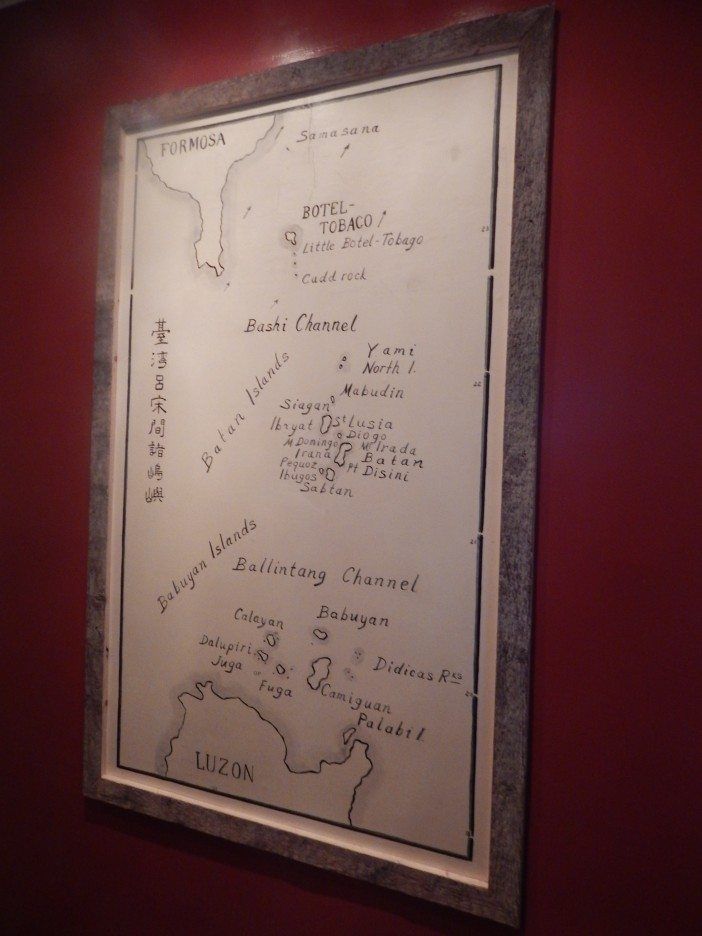 FORMOSA
Samasana
BOTEL-
TOBACO
Little Botel-Tobago
Cudd rock
23
Bashi Channel
Yami
North I.
22
Mabudin
Siagan
Batan Islands
Ibayat
St Lusia
Diogo
M. Domingo
Mt Irada
Irana
Batan
Pequoz
Pt Disini
Ibugos
Sabtan
臺湾呂宋間諸嶋嶼
21
Babuyan Islands
Ballintang Channel
Calayan
Babuyan
Dalupiri
Juga
Didicas Rks
Fuga
Camiguan
Palabi I.
LUZON